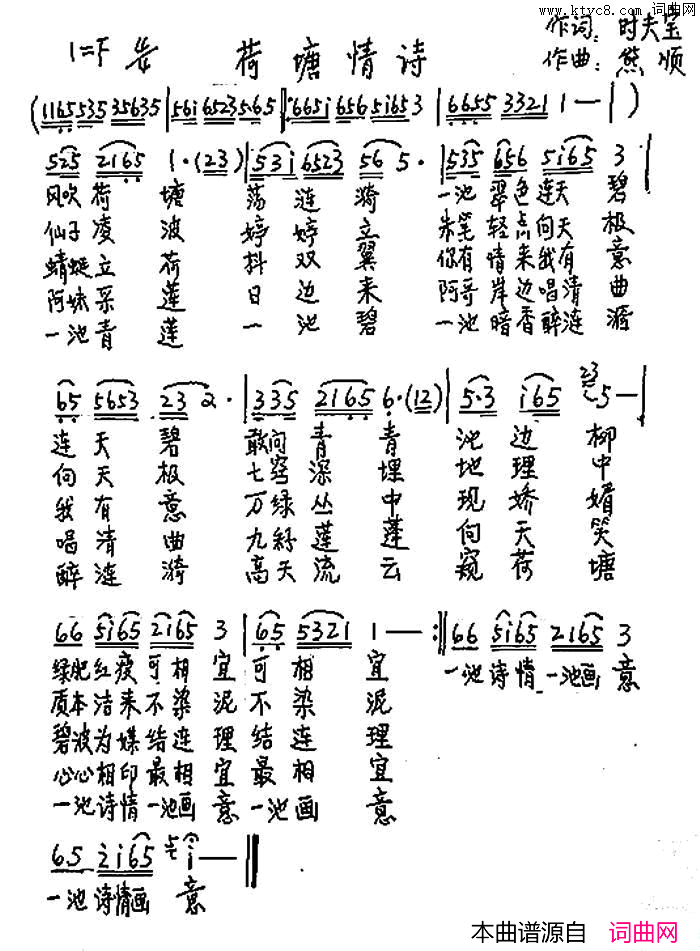 www.ktyc8.com 词曲网
1=F 荷塘情诗
作词:时夫宝
作曲:熊顺
(1165 535 35635 | 56i 6523 565 | 665i 656 5i65 3 | 6655 3321 1 — | )
525 2165 1·(23) | 53i 6523 56 5· | 535 656 5i65 3 |
风吹荷塘荡涟漪 一池翠色连天碧
仙子凌波婷婷立 朱笔轻点向天极
蜻蜓立荷抖双翼 你有情来我有意
阿妹采莲日边来 阿哥岸边唱清曲
一池青莲一池碧 一池暗香醉涟漪
65 5653 23 2· | 335 2165 6·(12) | 5·3 i65 23 5 — |
连天碧 敢问青青池边柳
向天极 七窍深埋地理中
我有意 万绿丛中现娇媚
唱清曲 莲蓬向天笑
醉涟漪 高天流云窥荷塘
66 5i65 2i65 3 | 65 5321 1 — :|| 66 5i65 2165 3
绿肥红瘦可相宜可相宜 一池诗情一池画意
质本洁来不染泥不染泥
碧波为媒结连理结连理
心心相印最相宜最相宜
一池诗情一池画意一池画意
65 2i65 i — ||
一池诗情画意
本曲谱源自 词曲网